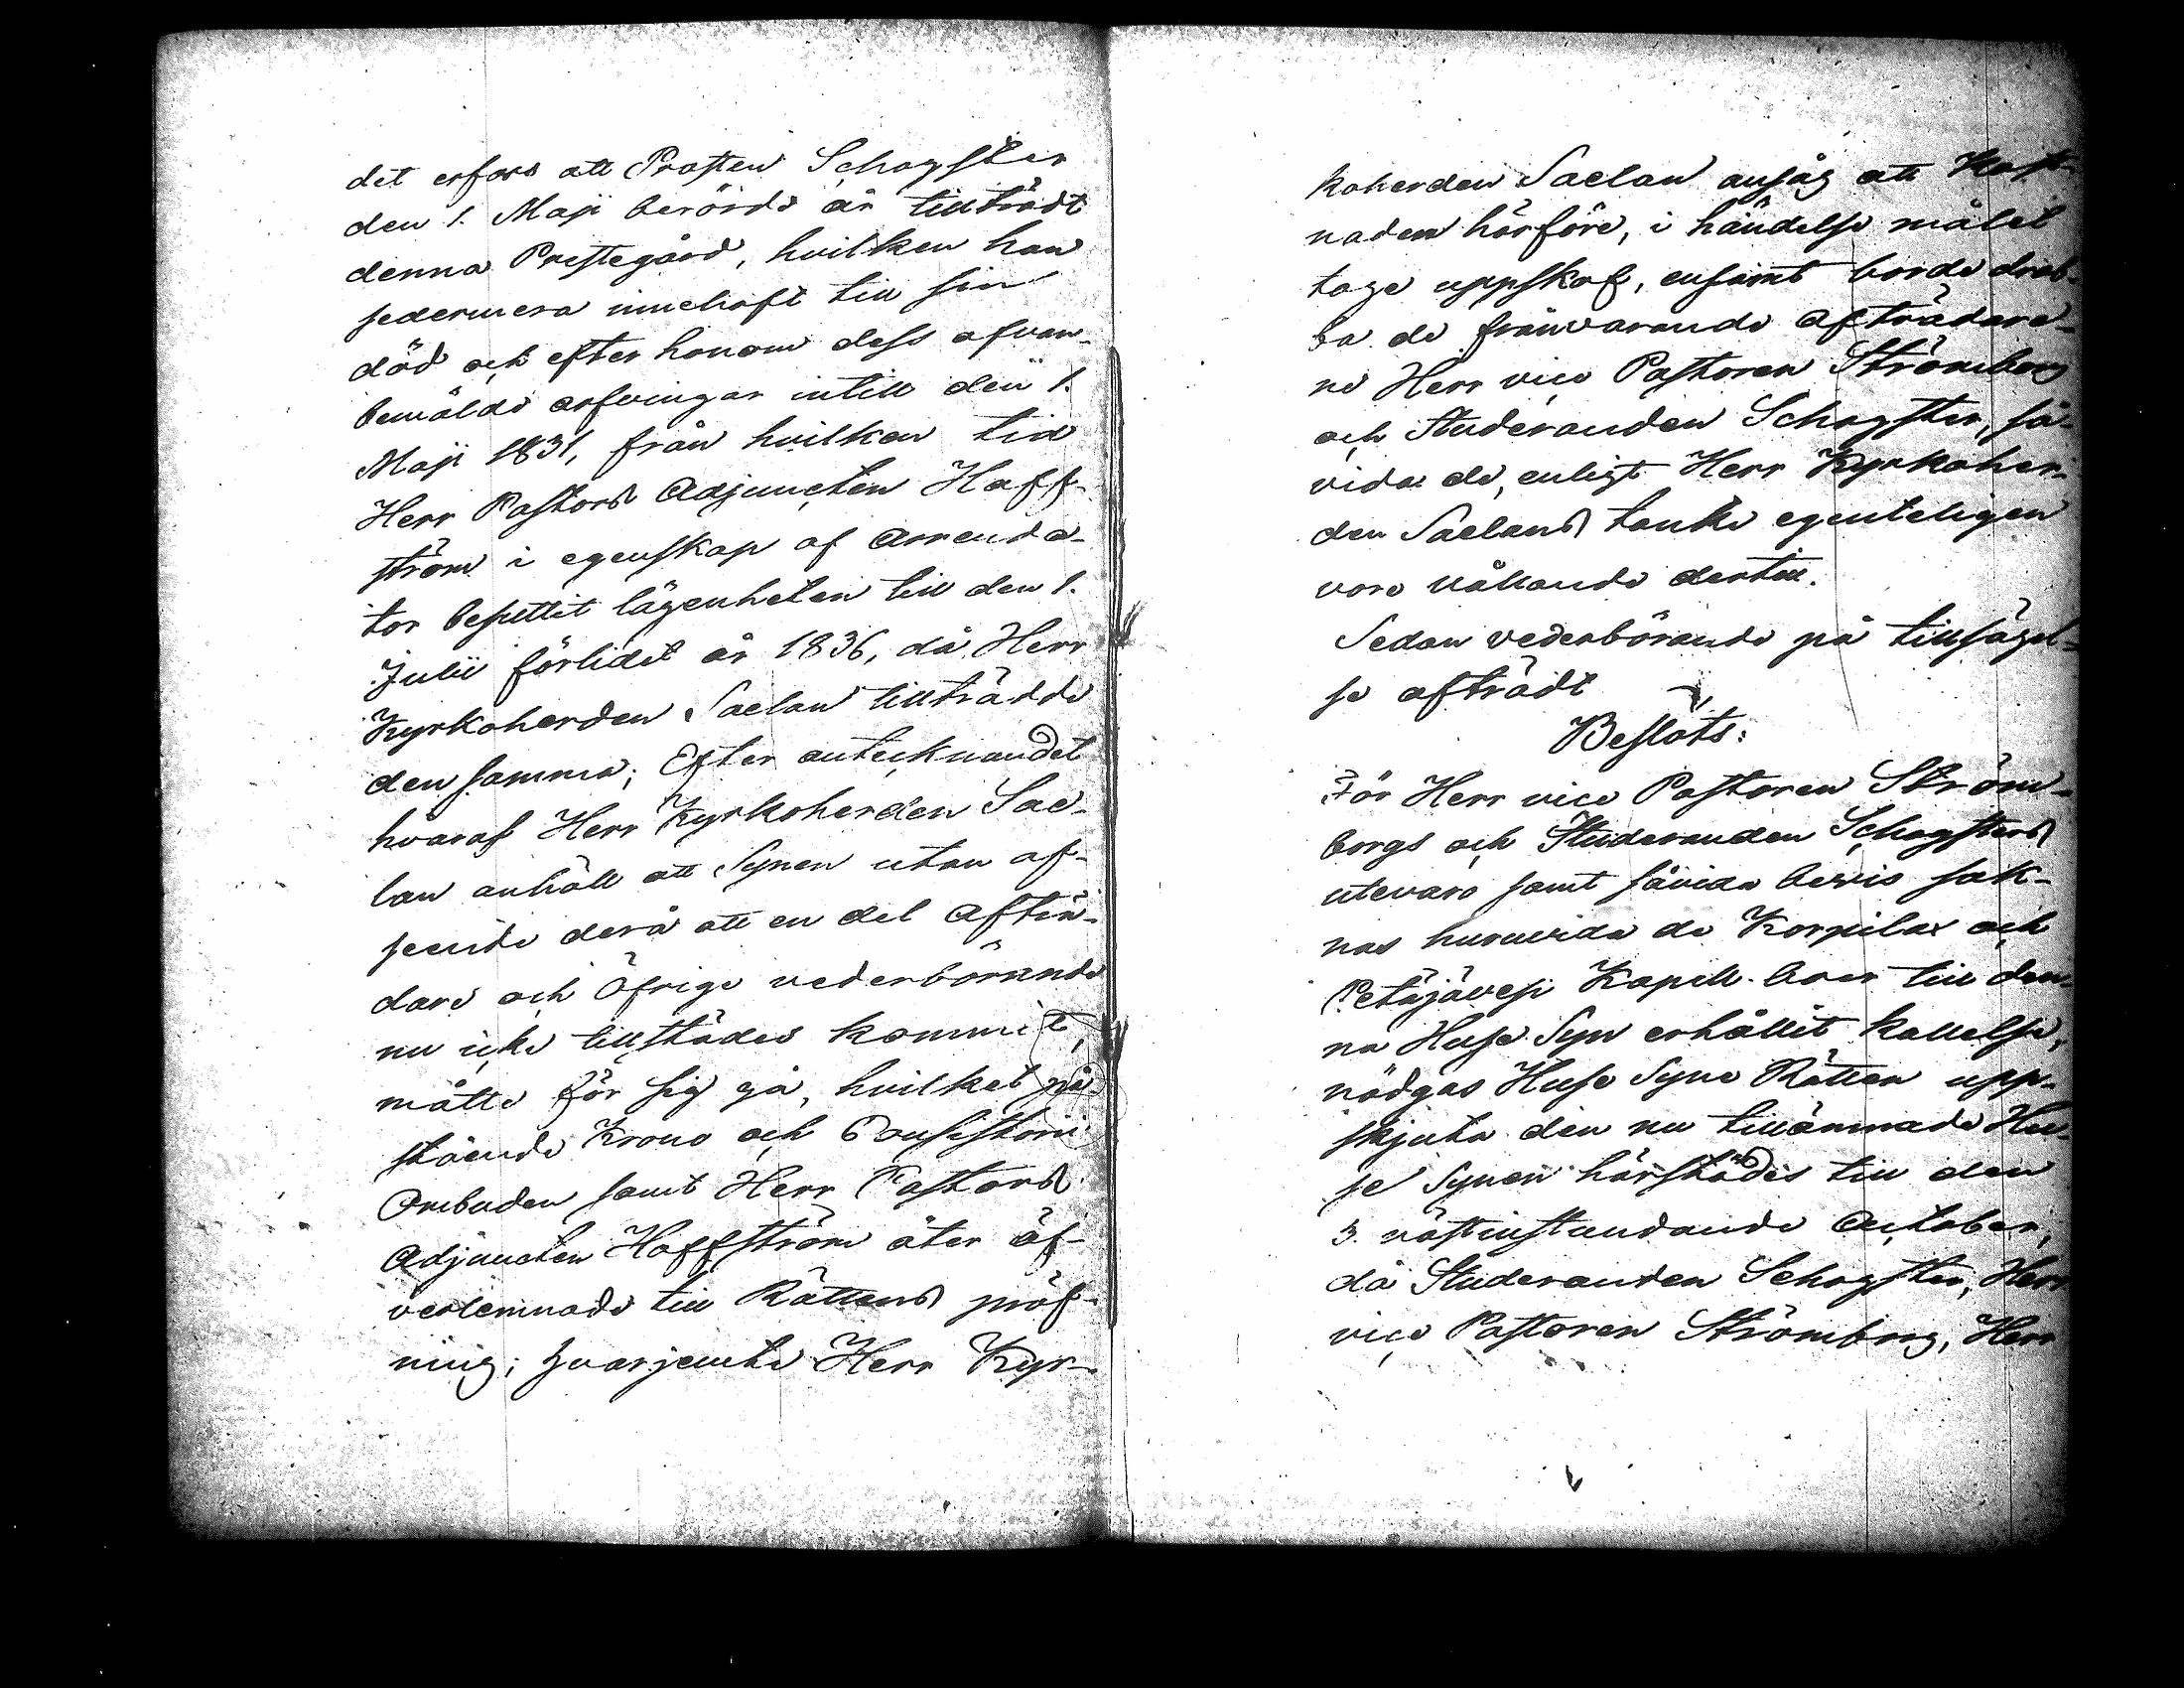 det erfors att Prosten Schogster
den 1. Maji berörde år tillträdt
denna Prestegård, hvilken han
sedermera innehaft till sin
död och efter honom dess ofvan-
bemälde arfvingar intill den 1.
Maji 1831, från hvilken tid
Herr Pastors Adjuncten Hoff-
ström i egenskap af Arrenda-
tor besuttit lägenheten till den 1.
Julii förlidit år 1836, då Herr
Kyrkoherden Saelan tillträdde
den samma; Efter antecknandet
hvaraf Herr Kyrkoherden Sae-
lan anhöll att Synen utan af-
seende derå att en del Afträ-
dare och Öfrige vederbörande
nu icke tillstädes kommit,
måtte för sig gå, hvilket på-
stående Krono och Consistorii
Ombuden samt Herr Pastors
Adjuncten Hoffström åter öf-
verlemnade till Rättens pröf-
ning; hvarjemte Herr Kyr-
koherden Saelan ansåg att Kost-
naden härföre, i händelse målet
toge uppskof, ensamt borde drab-
ba de frånvarande Afträdare-
ne Herr vice Pastoren Strömborg
och Studeranden Schogster, så-
vida de, enligt Herr Kyrkoher-
den Saelans tanke egenteligen
voro vållande dertill.
Sedan vederbörande på tillsägel-
se afträdt
Beslöts:
För Herr vice Pastoren Ström-
borgs och Studeranden Schogsters
utevaro samt såvida bevis sak-
nas huruvida de Korpilax och
Petäjävesi Kapell boer till den-
na Huse Syn erhållit kallelse,
nödgas Huse Syne Rätten upp-
skjuta den nu tillämnade Hu-
se Synen härstädes till den
3. nästinstundande October,
då Studeranden Schogster, Herr
vice Pastoren Strömborg, Herr